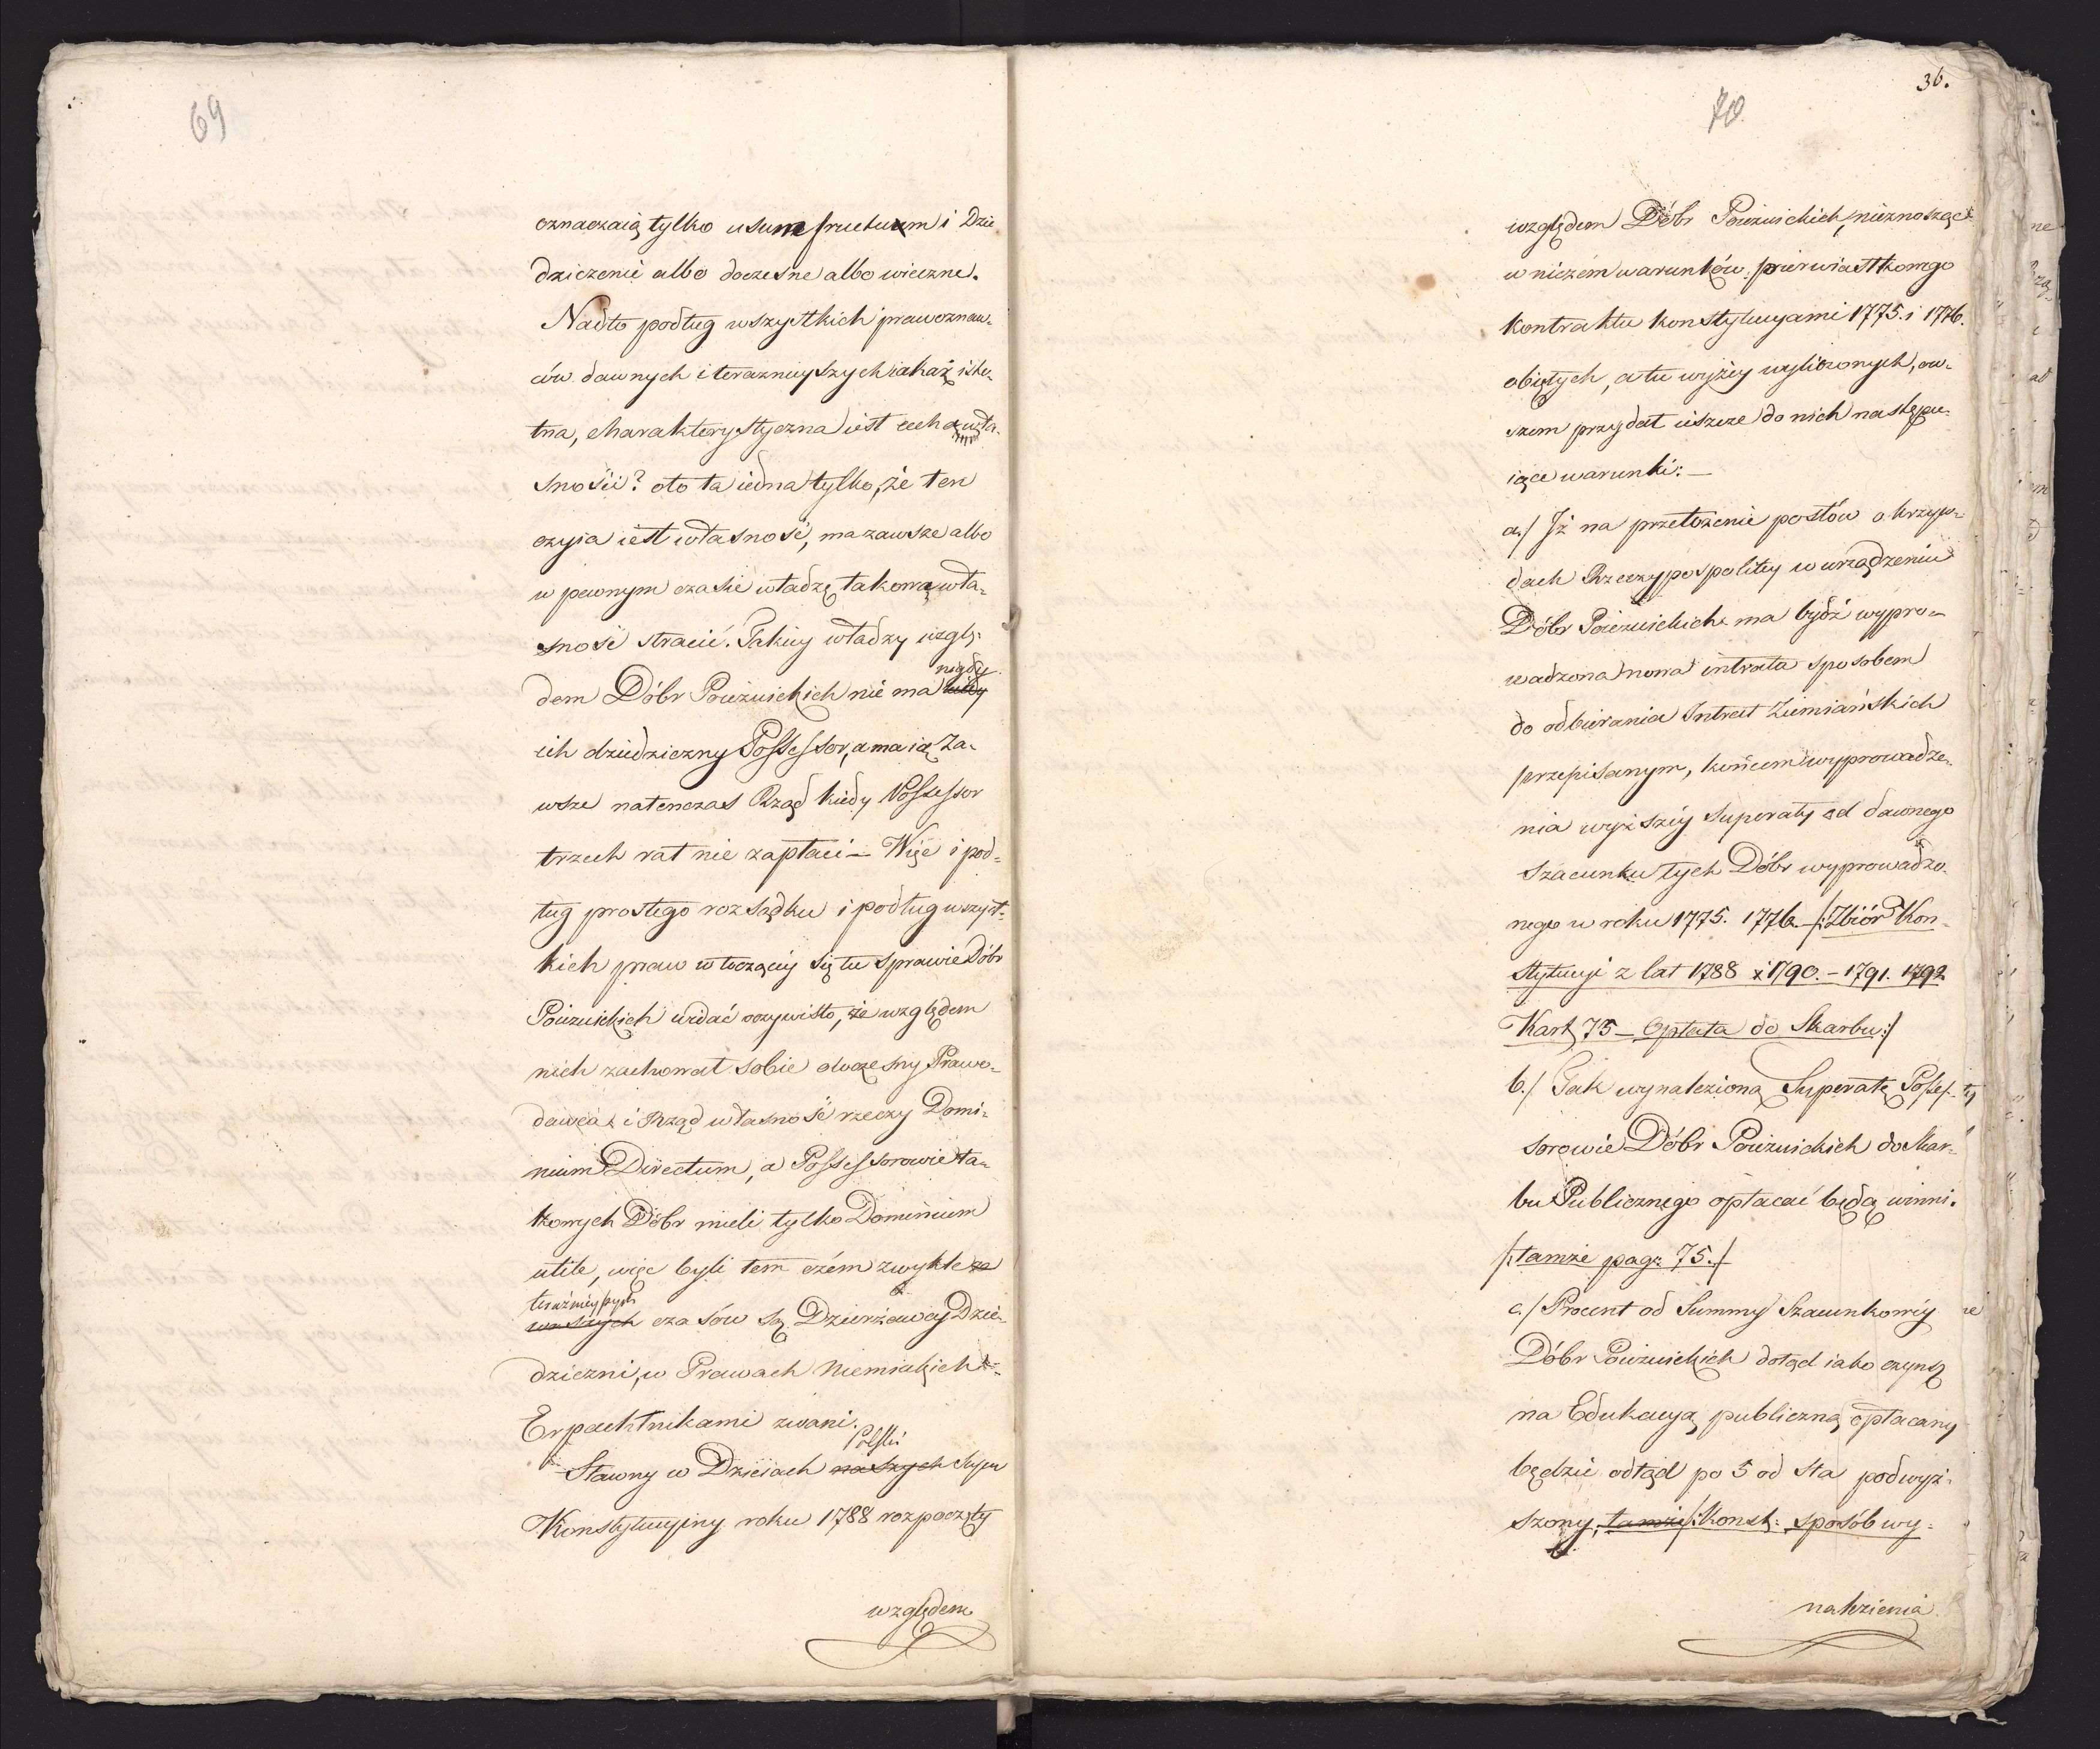 69
oznaczaią tylko usumfructum i Dzie
dziczenie albo doczesne albo wieczne.
Nadto podług wszystkich prawoznaw-
ców dawnych i teraznieyszych iakaż isto-
tna, charakterystyczna iest cecha wła-
sności? oto ta iedna tylko, że ten
czyia iest własność, ma zawsze albo
w pewnym czasie władzę takową wła-
sność stracić. Takiey władzy wzglę-
dem Dóbr Poiezuickich nie ma nigdy
ich dziedziczny Possessor, a ma ią Za-
wsze natenczas Rząd kiedy Possessor
trzech rat nie zapłaci — Więc i pod-
ług prostego rozsądku i podług wszyst-
kich praw w toczącey się tu sprawie Dóbr
Poiezuickich widać oczywisto, że względem
nich zachował sobie owczesny Prawo-
dawca i Rząd własność rzeczy Domi-
nium Directum, a Possessorowie ta-
kowych Dóbr mieli tylko Dominium
utile, więc byli tem czém zwykle za
teraźnieyszych
naszych czasów są Dzierżawcy Dzie-
dziczni, w Prawach Niemieckich
Erpachtnikami zwani.
Sławny w Dzieiach naszych Polski Seym
Konstytucyiny roku 1788 rozpoczęty
względem
36.
70
względem Dóbr Poiezuickich, nieznosząc
w niczém warunków pierwiastkowego
kontraktu konstytucyami 1775. i 1776.
obiętych, a tu wyżey wyliczonych, ow-
szem przydał ieszcze do nich następu-
iące warunki: —
a./ Iż na przełożenie posłów o krzyw-
dach Rzeczypospolitey w urządzeniu
Dóbr Poiezuickich ma bydź wypro-
wadzona nowa intrata sposobem
do odbierania Intrat Ziemiańskich
przepisanym, końcem wyprowadze-
nia wyższéy superaty od dawnego
szacunku tych Dóbr wyprowadzo-
nego w roku 1775. 1776. /: Zbiór Kon-
stytucyi z lat 1788 i 1790. – 1791. 1792
Kart 75 — Opłata do Skarbu :/
b./ Tak wynalezioną Superatę Posses-
sorowie Dóbr Poiezuickich do Skar-
bu Publicznego opłacać będą winni.
/: tamże pag: 75. :/
c./ Procent od Summy Szacunkowéy
Dóbr Poiezuickich dotąd iako czynsz
na Edukacyą publiczną opłacany
będzie odtąd po 5 od sta podwyż-
szony, tamże /: Konst: sposób wy-
nalezienia